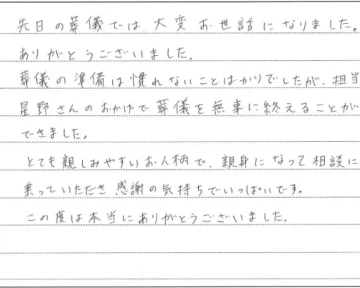 先日の葬儀では、大変お世話になりました。
ありがとうございました。
葬儀の準備は慣れないことばかりでしたが、担当
星野さんのおかげで葬儀を無事に終えることが
できました。
とても親しみやすいお人柄で、親身になって相談に
乗っていただき感謝の気持ちでいっぱいです。
この度は本当にありがとうございました。